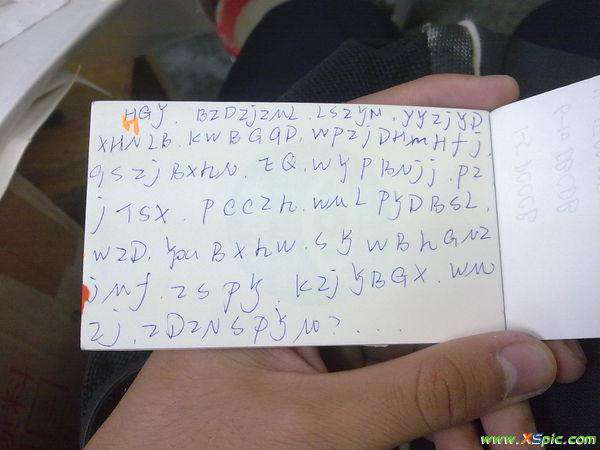 HGY. BZDZjZML. LSZYM. YYZjYD
XHNLB. KWBGGD. WPZjDHMHfj.
9SZjBXhN. ZQ. WYPBNjj. PZ
jTSX. PCCZh. WML PYDBSL.
WZD. YMBXhW. SYWBhGNZ
jMf. ZSPY. KZjYBGX. WM
Zj. ZDZNSPYM? ....
www.XSpic.com